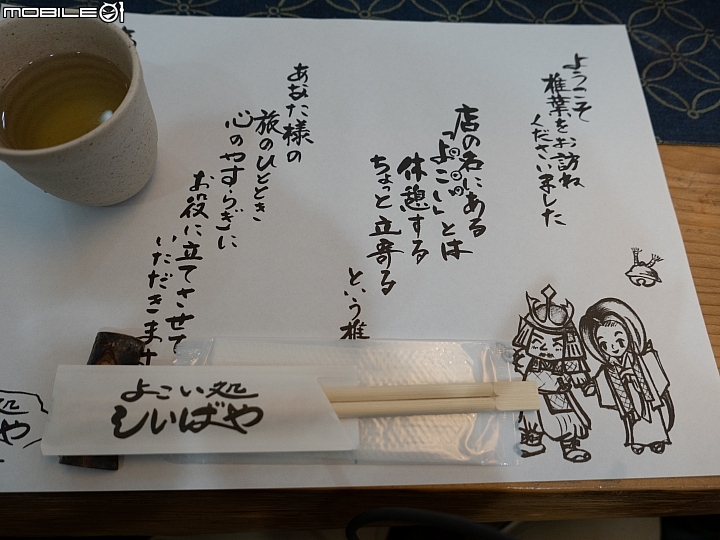 MOBILE01
ようこそ
椎葉をお訪ね
くださいました
店の名にある
「よこい」とは
休憩する
ちょっと立寄る
という椎
あなた様の
旅のひととき
心のやすらぎに
お役に立てさせて
いただきます
よこい処
しいばや
処
や